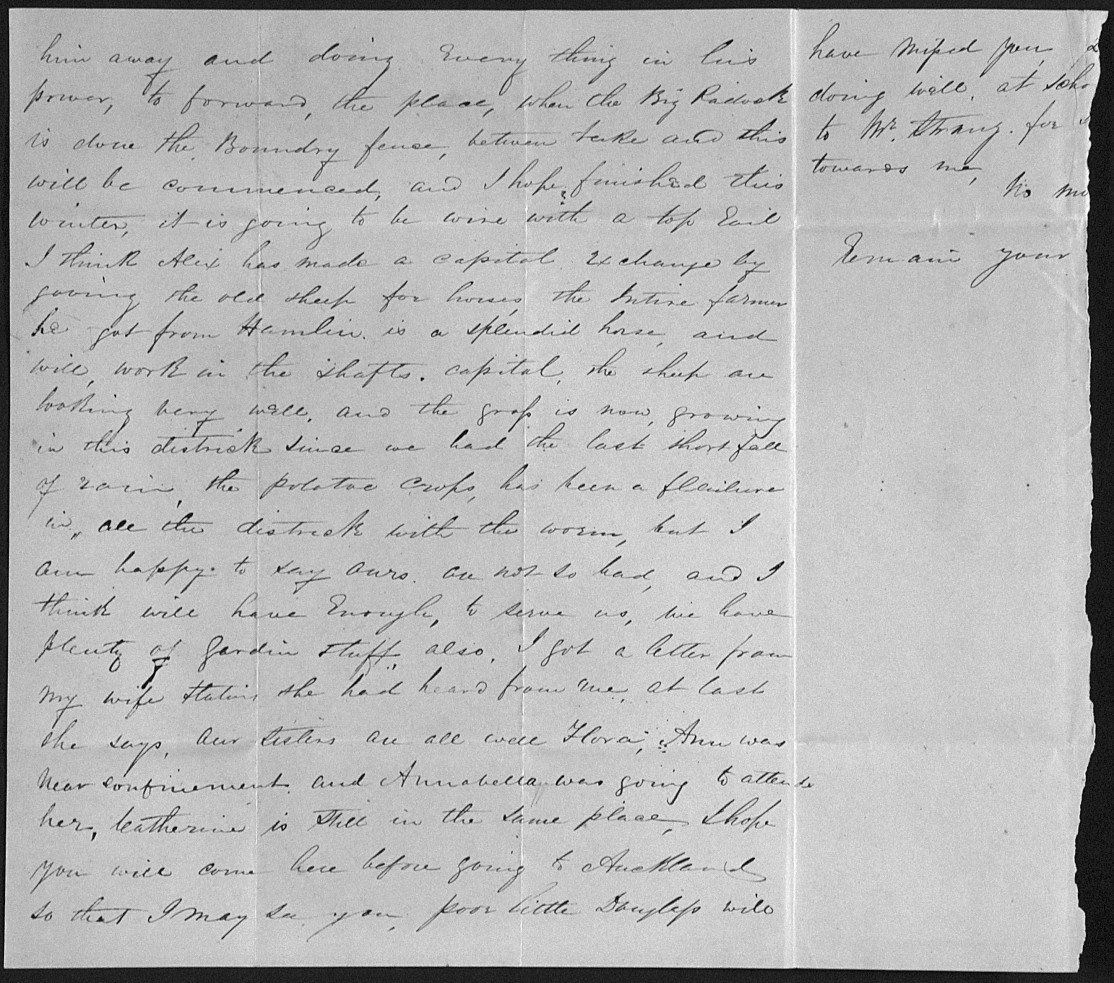 him away and doing Every thing in his
power, to forward, the place, when the Big Padock
is done the Boundry fence, between take and this
will be commenced, and I hope finished this
winter, it is going to be wire with a top Rail
I think Alix has made a capital Exchange by
the old sheep for horses, the Intire farmer
he got from Hamlin. is a splendid horse, and
will, work in the shafts. capital, the sheep are
looking very well, and the grass is now, growing
in this district since we had the last short fall
of rain, the potatoe crops, has been a flailure
in, all the districk with the worm, but I
am happy to say ours. are not so bad, and I
think will have Enough, to serve us, we have
plenty of Gardin stuff, also, I got a letter from
my wife stating she had heard from me, at last
she says, our sisters are all well Flora, Ann was
near confinement, and Annabella was going to attende
her, Catherine is still in the same place, I hope
you will come here before going to Auckland
so that I may see you, poor little Douglass will
have missed you,
doing well. at scho
to Mr. Strang. for
towards me,
No mo
Remain your